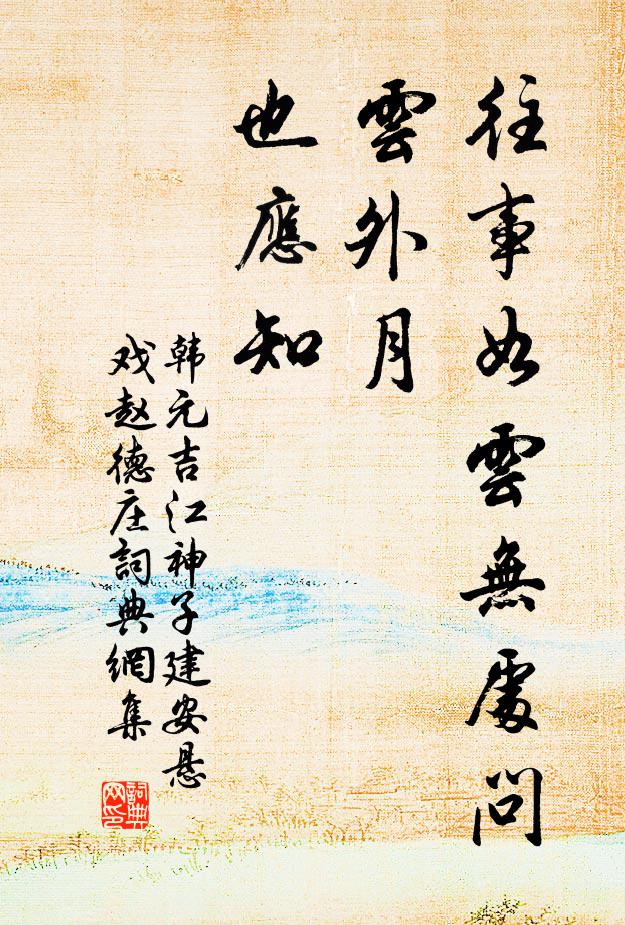 往事如雲無處問
雲外月
也應知
韩元吉江神子建安悬
戏赵德庄詞典網集
詞典
网印